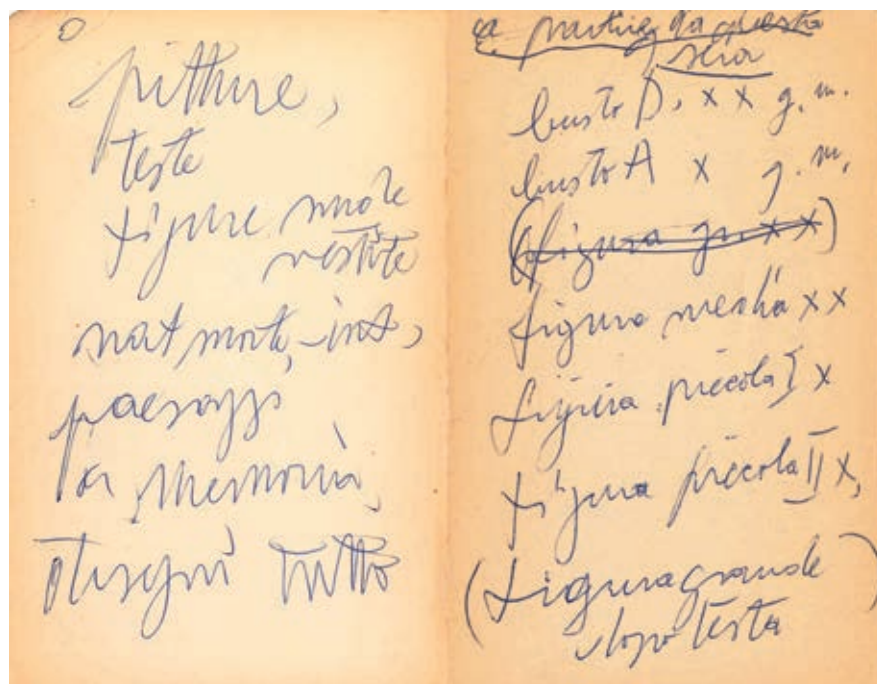 pitture,
teste
figure nude
vestite
nat morte, int,
paesaggi
a memoria,
disegni tutto
a partire da questa
sera
busto D. x x g. m.
busto A x g. m.
(figura gr. x x)
figura media x x
figura piccola I x
figura piccola II x,
(figura grande)
dopo testa